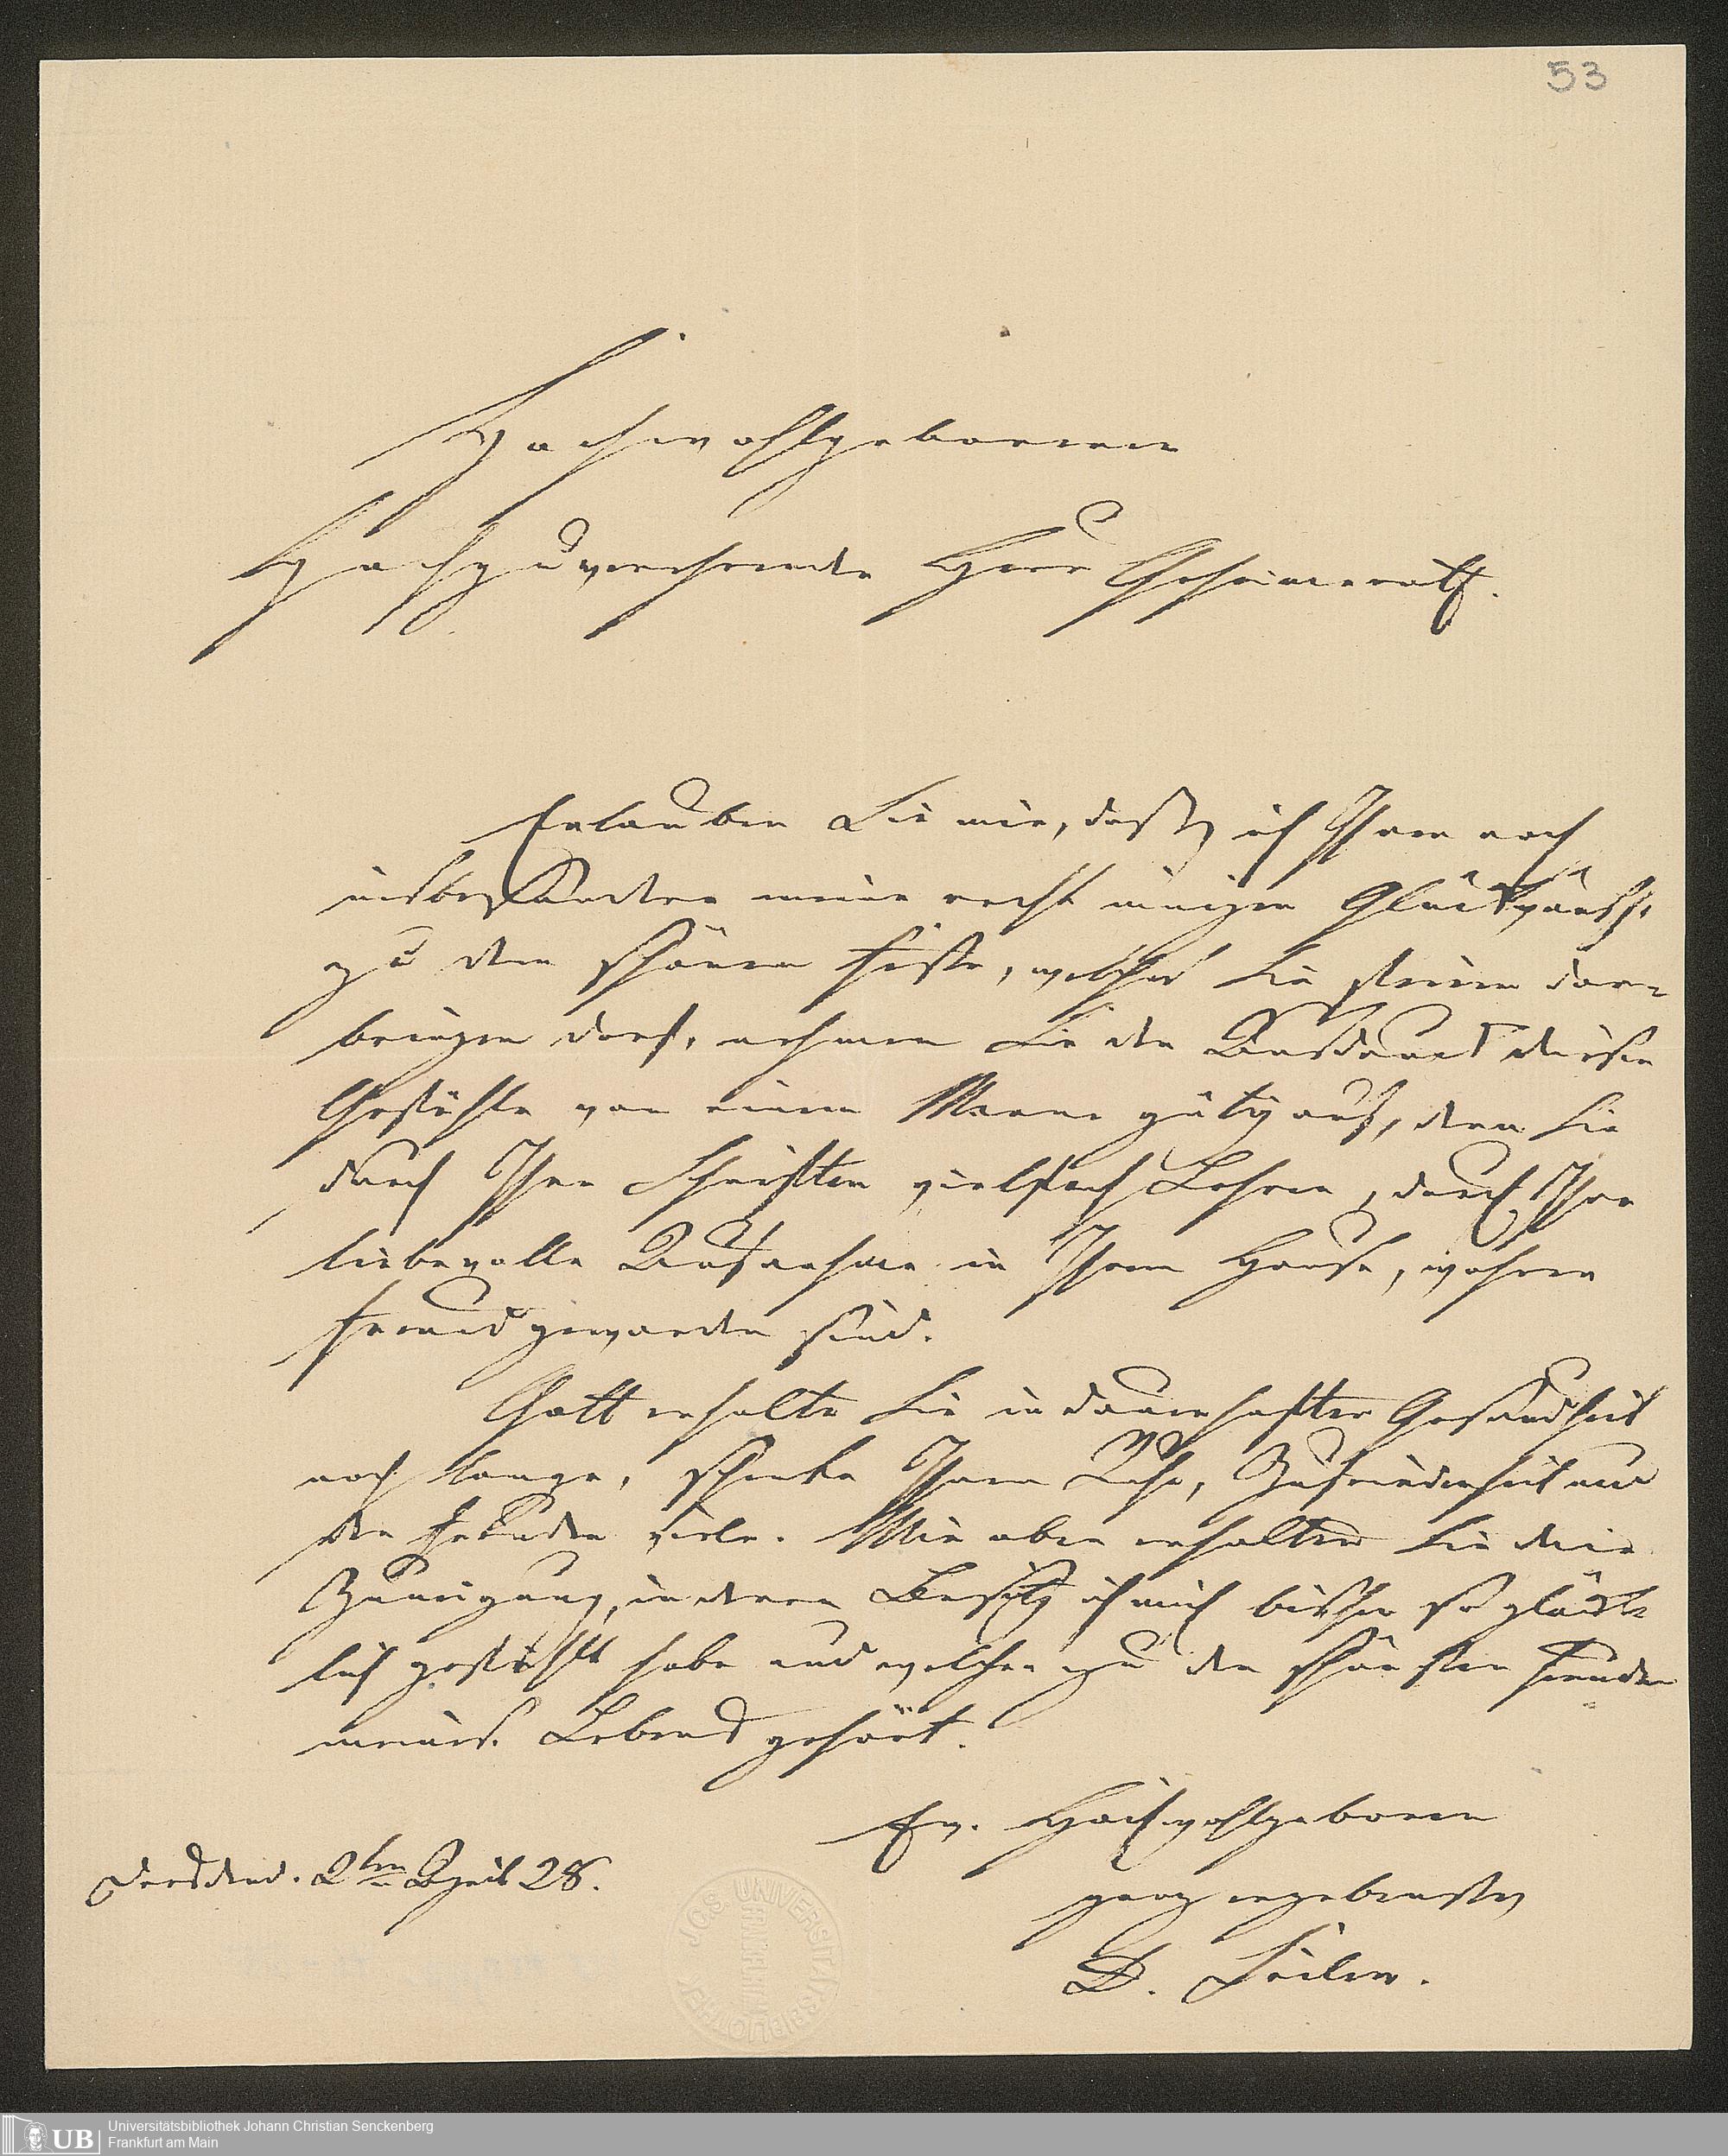 53
Hochwohlgeborener
Hochzuverehrender Herr Geheimerath.
Erlauben Sie mir, daß ich Ihnen noch
insbesondere meine recht innigen Glückwünsche
zu dem schönen Feste, welches Sie feiern dar-
bringen darf, nehmen Sie den Ausdruck dieser
Gefühle von einem Manne gütig auf, dem Sie
durch Ihre Schriften vielfach Lehrer, durch Ihre
liebevolle Aufnahme in Ihrem Hause, wahrer
Freund geworden sind.
Gott erhalte Sie in dauerhafter Gesundheit
noch lange, schenke Ihnen Ruhe, Zufriedenheit und
der Freuden viele. Mir aber erhalten Sie die
Zuneigung, in deren Besitz ich mich bisher so glück-
lich gefühlt habe und welche zu den schönsten Freuden
meines Lebens gehört.
Ew. Hochwohlgeboren
Dresden d. 2ten April 28.
ganz ergebenster
D. Seiler.
J.C.S. UNIVERSITÄTSBIBLIOTHEK FRANKFURT/MAIN
UB
Universitätsbibliothek Johann Christian Senckenberg
Frankfurt am Main